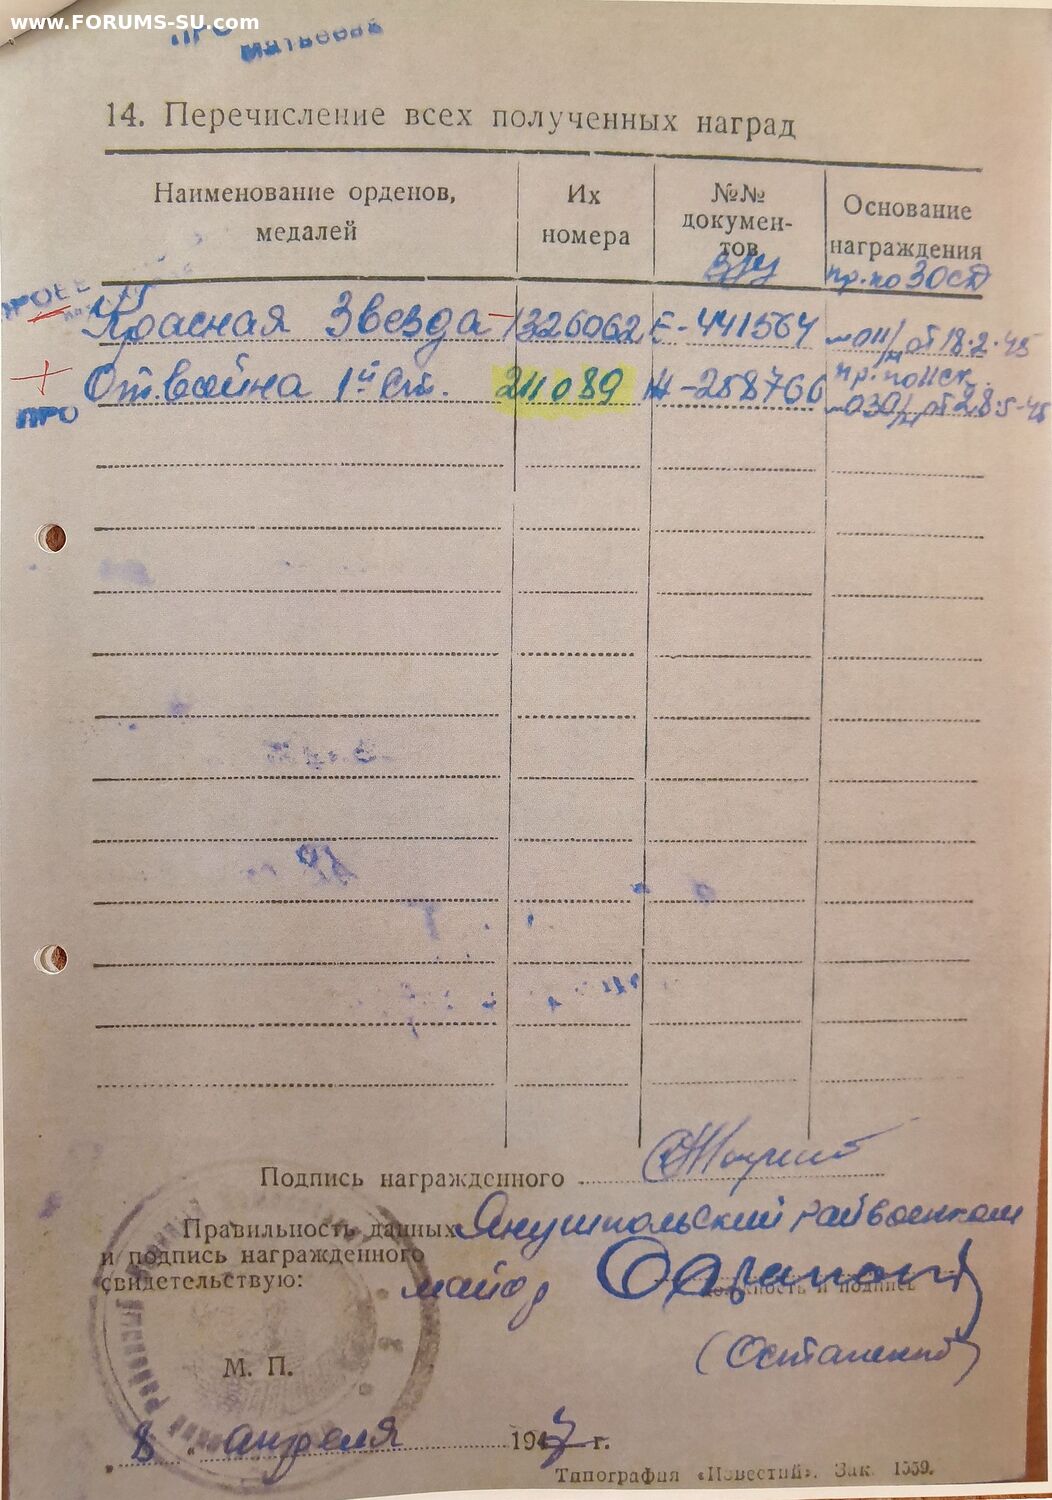 www.FORUMS-SU.com
ПРО
Матвеева
14. Перечисление всех полученных наград
Наименование орденов, медалей
Их номера
№№ документов
Основание награждения
пр. по 30 сд
Красная Звезда - 1326062 Е-441564 №011/н от 18.2.45
От. война 1й ст. 211089 Н-258766 пр. по 11 ск. №030/н от 28.5.45
ПРО
Подпись награжденного
Правильность данных Янушпольский райвоенком
и подпись награжденного
свидетельствую: майор
должность и подпись
(Остапенко)
М. П.
„ 8 “ апреля 1947 г.
Типография «Известий». Зак. 1559.